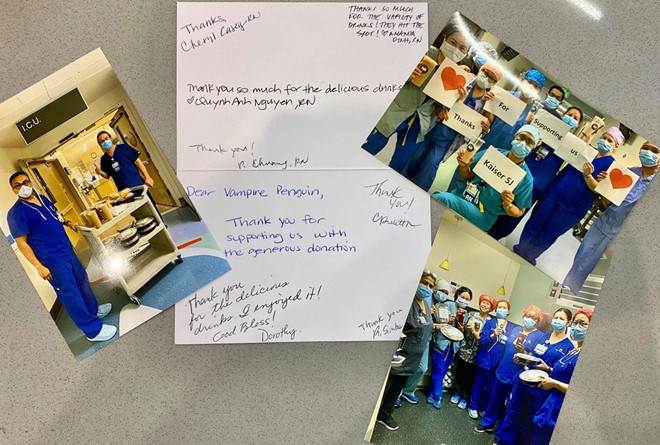 Thanks,
Cheryl Casey, RN
THANKS SO MUCH
FOR THE VARIETY OF
DRINKS! THEY HIT THE
SPOT! ♡ AMANDA
DINH, RN
Thank you so much for the delicious drinks
♡ Quynh Anh Nguyen, RN
Thank you!
RN
Dear Vampire Penguin,
Thank you for
supporting us with
the generous donation
Thank
you!
Thank you
for the delicious
drinks. I enjoyed it!
God Bless!
Dorothy
Thank you
I.C.U.
Thanks
For
Supporting
us
Kaiser SJ